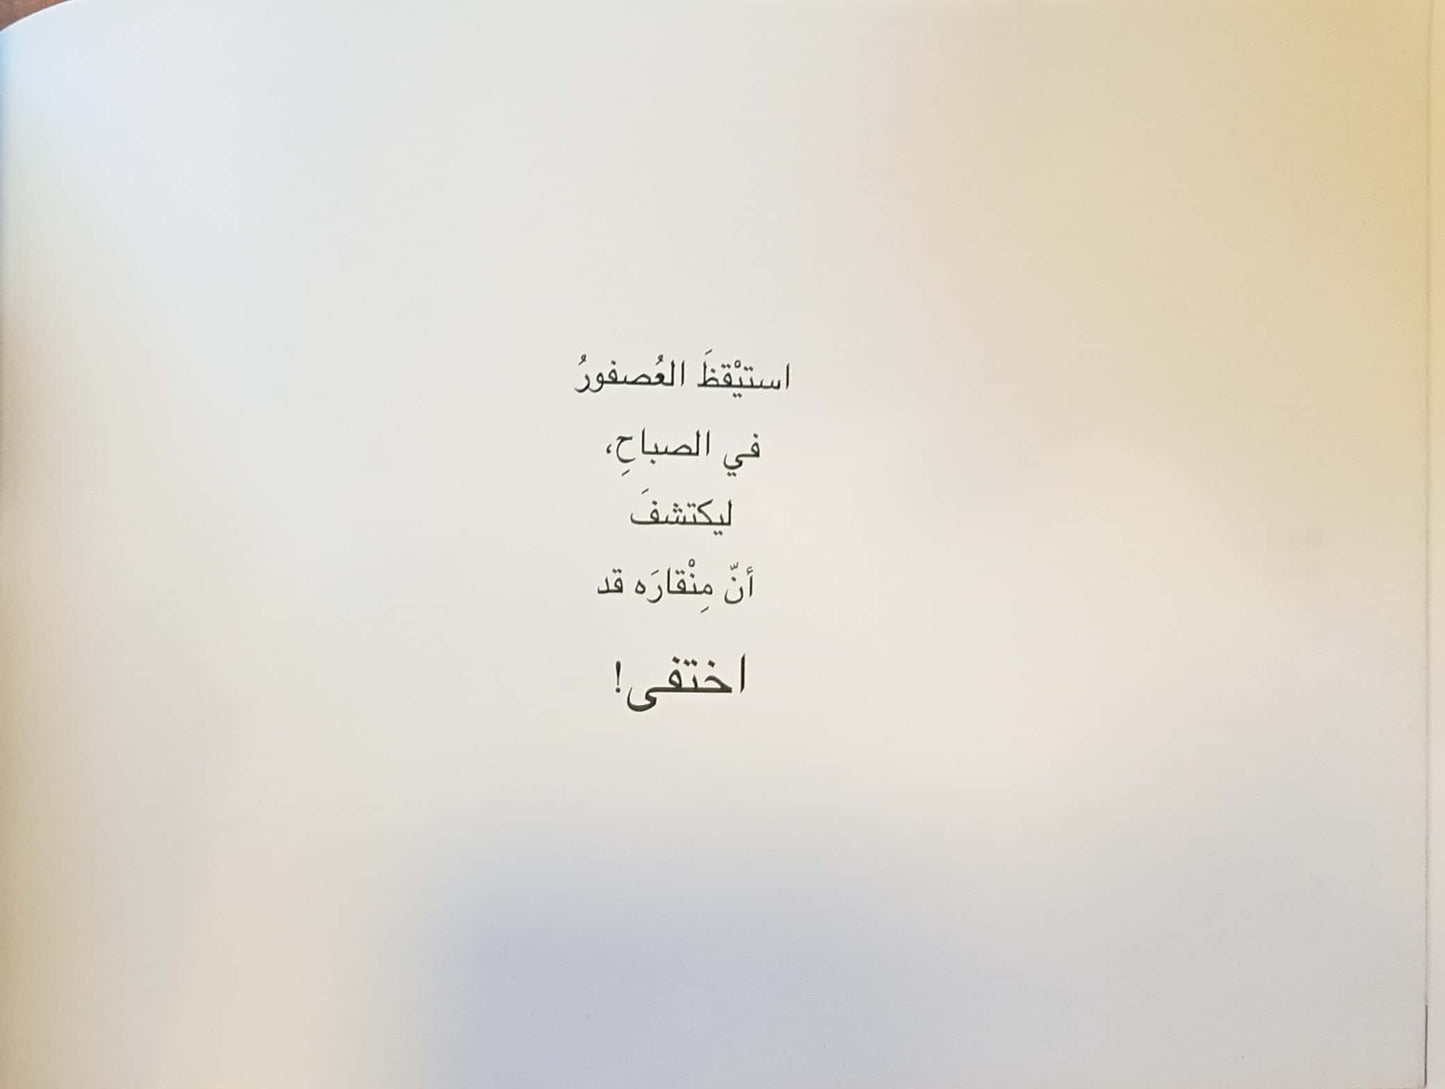 استيْقظَ العُصفورُ
في الصباحِ،
ليكتشفَ
أنّ مِنْقارَه قد
اختفى!